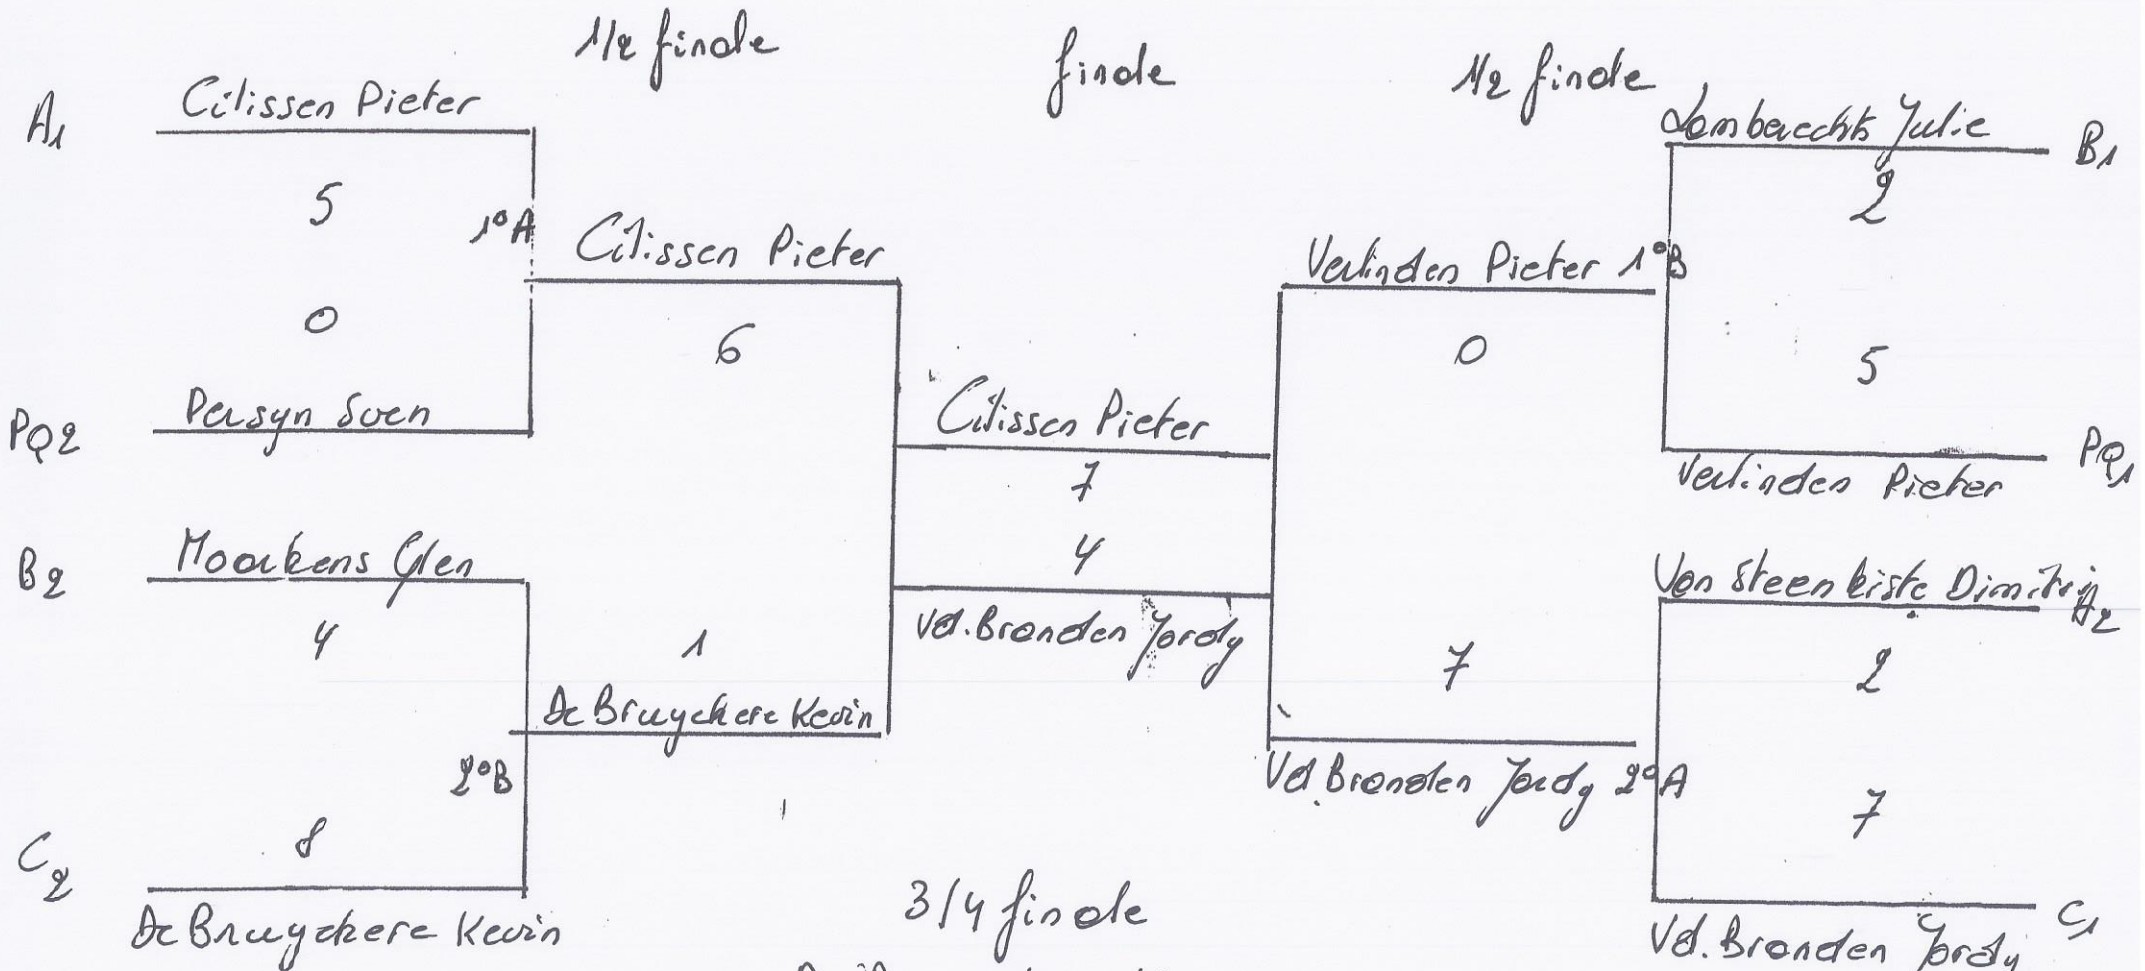 1/2 finale
finale
1/2 finale
A1
Cilissen Pieter
5
0
PQ2
Persyn Sven
1°A
B2
Moorkens Glen
4
8
C2
De Bruyckere Kevin
2°B
Cilissen Pieter
6
1
De Bruyckere Kevin
Cilissen Pieter
7
4
Vd. Branden Jordy
Verlinden Pieter 1°B
0
7
Vd. Branden Jordy 2°A
Lambrechts Julie
B1
2
5
Verlinden Pieter
PQ1
Van Steenkiste Dimitri
A2
2
7
Vd. Branden Jordy
C1
3/4 finale